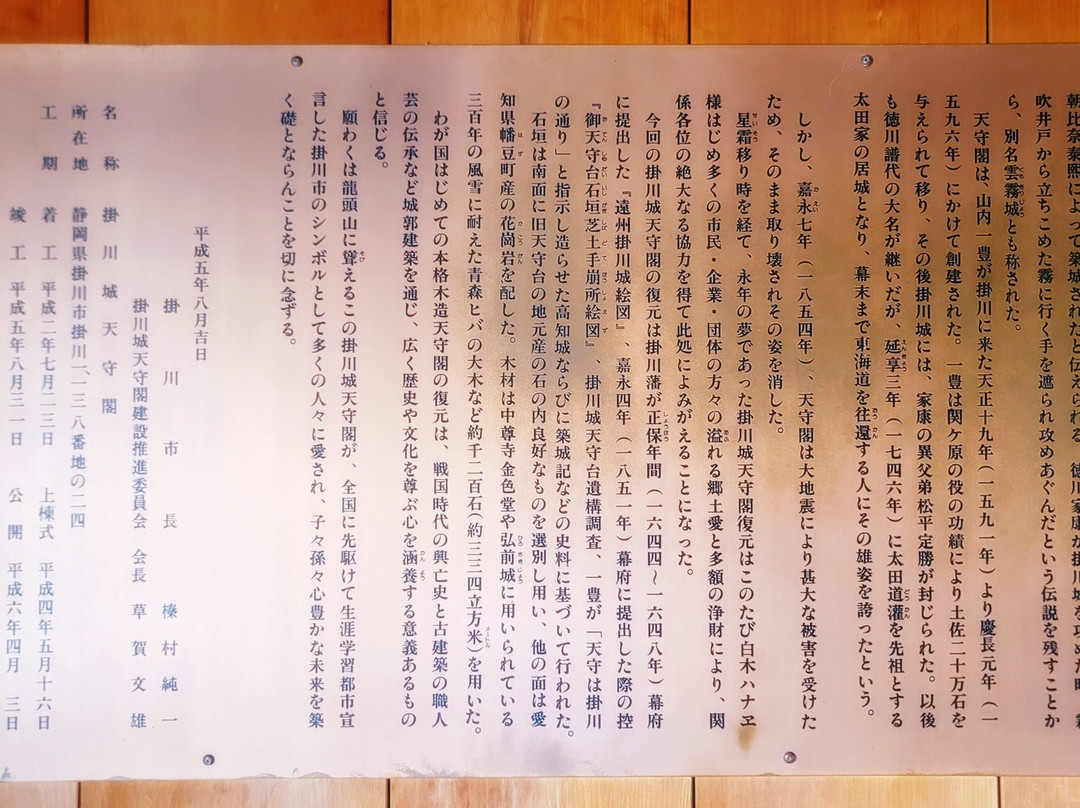 朝比奈泰煕によって築城されたと伝えられる。徳川家康が掛川城を攻めた時、
吹井戸から立ちこめた霧に行く手を遮られ攻めあぐんだという伝説を残すことか
ら、別名雲霧城とも称された。
天守閣は、山内一豊が掛川に来た天正十九年（一五九一年）より慶長元年（一
五九六年）にかけて創建された。一豊は関ケ原の役の功績により土佐二十万石を
与えられて移り、その後掛川城には、家康の異父弟松平定勝が封じられた。以後
も徳川譜代の大名が継いだが、延享三年（一七四六年）に太田道灌を先祖とする
太田家の居城となり、幕末まで東海道を往還する人にその雄姿を誇ったという。
しかし、嘉永七年（一八五四年）、天守閣は大地震により甚大な被害を受けた
ため、そのまま取り壊されその姿を消した。
星霜移り時を経て、永年の夢であった掛川城天守閣復元はこのたび白木ハナヱ
様はじめ多くの市民・企業・団体の方々の溢れる郷土愛と多額の浄財により、関
係各位の絶大なる協力を得て此処によみがえることになった。
今回の掛川城天守閣の復元は掛川藩が正保年間（一六四四～一六四八年）幕府
に提出した『遠州掛川城絵図』、嘉永四年（一八五一年）幕府に提出した際の控
『御天守台石垣芝土手崩所絵図』、掛川城天守台遺構調査、一豊が「天守は掛川
の通り」と指示し造らせた高知城ならびに築城記などの史料に基づいて行われた。
石垣は南面に旧天守台の地元産の石の内良好なものを選別し用い、他の面は愛
知県幡豆町産の花崗岩を配した。木材は中尊寺金色堂や弘前城に用いられている
三百年の風雪に耐えた青森ヒバの大木など約千二百石（約三三四立方米）を用いた。
わが国はじめての本格木造天守閣の復元は、戦国時代の興亡史と古建築の職人
芸の伝承など城郭建築を通じ、広く歴史や文化を尊ぶ心を涵養する意義あるもの
と信じる。
願わくは龍頭山に聳えるこの掛川城天守閣が、全国に先駆けて生涯学習都市宣
言した掛川市のシンボルとして多くの人々に愛され、子々孫々心豊かな未来を築
く礎とならんことを切に念ずる。
平成五年八月吉日
掛川市長 榛村純一
掛川城天守閣建設推進委員会 会長 草賀文雄
名称 掛川城天守閣
所在地 静岡県掛川市掛川一、一三八番地の二四
工期 着工 平成二年七月二三日 上棟式 平成四年五月十六日
竣工 平成五年八月三一日 公開 平成六年四月三日